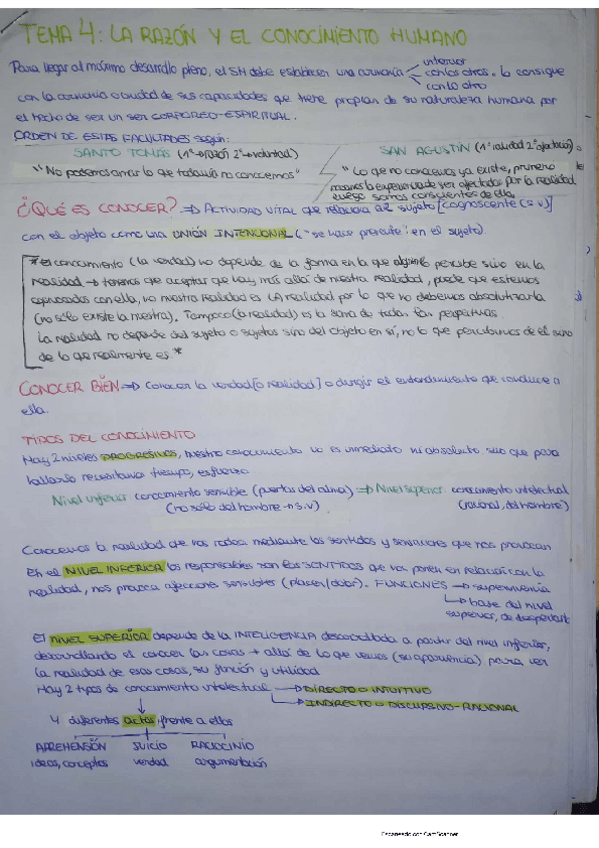 TEMA 4: LA RAZÓN Y EL CONOCIMIENTO HUMANO
interior
Para llegar al máximo desarrollo pleno, el SH debe establecer una armonía con los otros. Lo consigue
con lo otro
con la armonía o unidad de sus capacidades que tiene propias de su naturaleza humana por
el hecho de ser un ser CORPÓREO-ESPIRITUAL.
ORDEN DE ESTAS FACULTADES según:
SANTO TOMÁS (1º→razón 2º→voluntad)
SAN AGUSTÍN (1º realidad 2º afectación)
"No podemos amar lo que todavía no conocemos"
"Lo que no conocemos ya existe, primero
la experiencia de ser afectados por la realidad
luego somos conscientes de ella
¿QUÉ ES CONOCER? ⇒ ACTIVIDAD VITAL que relaciona al sujeto [cognoscente (s.v)]
con el objeto como una UNIÓN INTENCIONAL ("se hace presente" en el sujeto).
*el conocimiento (la verdad) no depende de la forma en la que alguien percibe sino en la
realidad → tenemos que aceptar que hay más allá de nuestra realidad, puede que estemos
equivocados con ella, no nuestra realidad es LA realidad por lo que no debemos absolutizarla
(no sólo existe la nuestra). Tampoco (la realidad) es la suma de todas las perspectivas
La realidad no depende del sujeto o sujetos sino del objeto en sí, no lo que percibimos de él sino
de lo que realmente es *
CONOCER BIEN ⇒ Conocer la verdad [o realidad] o dirigir el entendimiento que conduce a
ella.
TIPOS DEL CONOCIMIENTO
Hay 2 niveles PROGRESIVOS, nuestro conocimiento no es inmediato ni absoluto sino que para
hallarlo necesitamos tiempo, esfuerzo
Nivel inferior: conocimiento sensible (puertas del alma) ⇒ Nivel superior: conocimiento intelectual
(no sólo del hombre - n s.v)
(racional, del hombre)
Conocemos la realidad que nos rodea mediante los sentidos y sensaciones que nos provocan
En el NIVEL INFERIOR los responsables son los SENTIDOS que nos ponen en relación con la
realidad, nos provoca afecciones sensibles (placer/dolor). FUNCIONES → supervivencia
base del nivel
superior, de despertarlo
El NIVEL SUPERIOR depende de la INTELIGENCIA desarrollada a partir del nivel inferior,
desarrollando el conocer las cosas + allá de lo que vemos (su apariencia) para ver
la realidad de esas cosas, su función y utilidad
Hay 2 tipos de conocimiento intelectual → DIRECTO O INTUITIVO
INDIRECTO O DISCURSIVO-RACIONAL
4 diferentes actos frente a ellos
APREHENSIÓN JUICIO RACIOCINIO
ideas, conceptos verdad argumentación
Escaneado con CamScanner